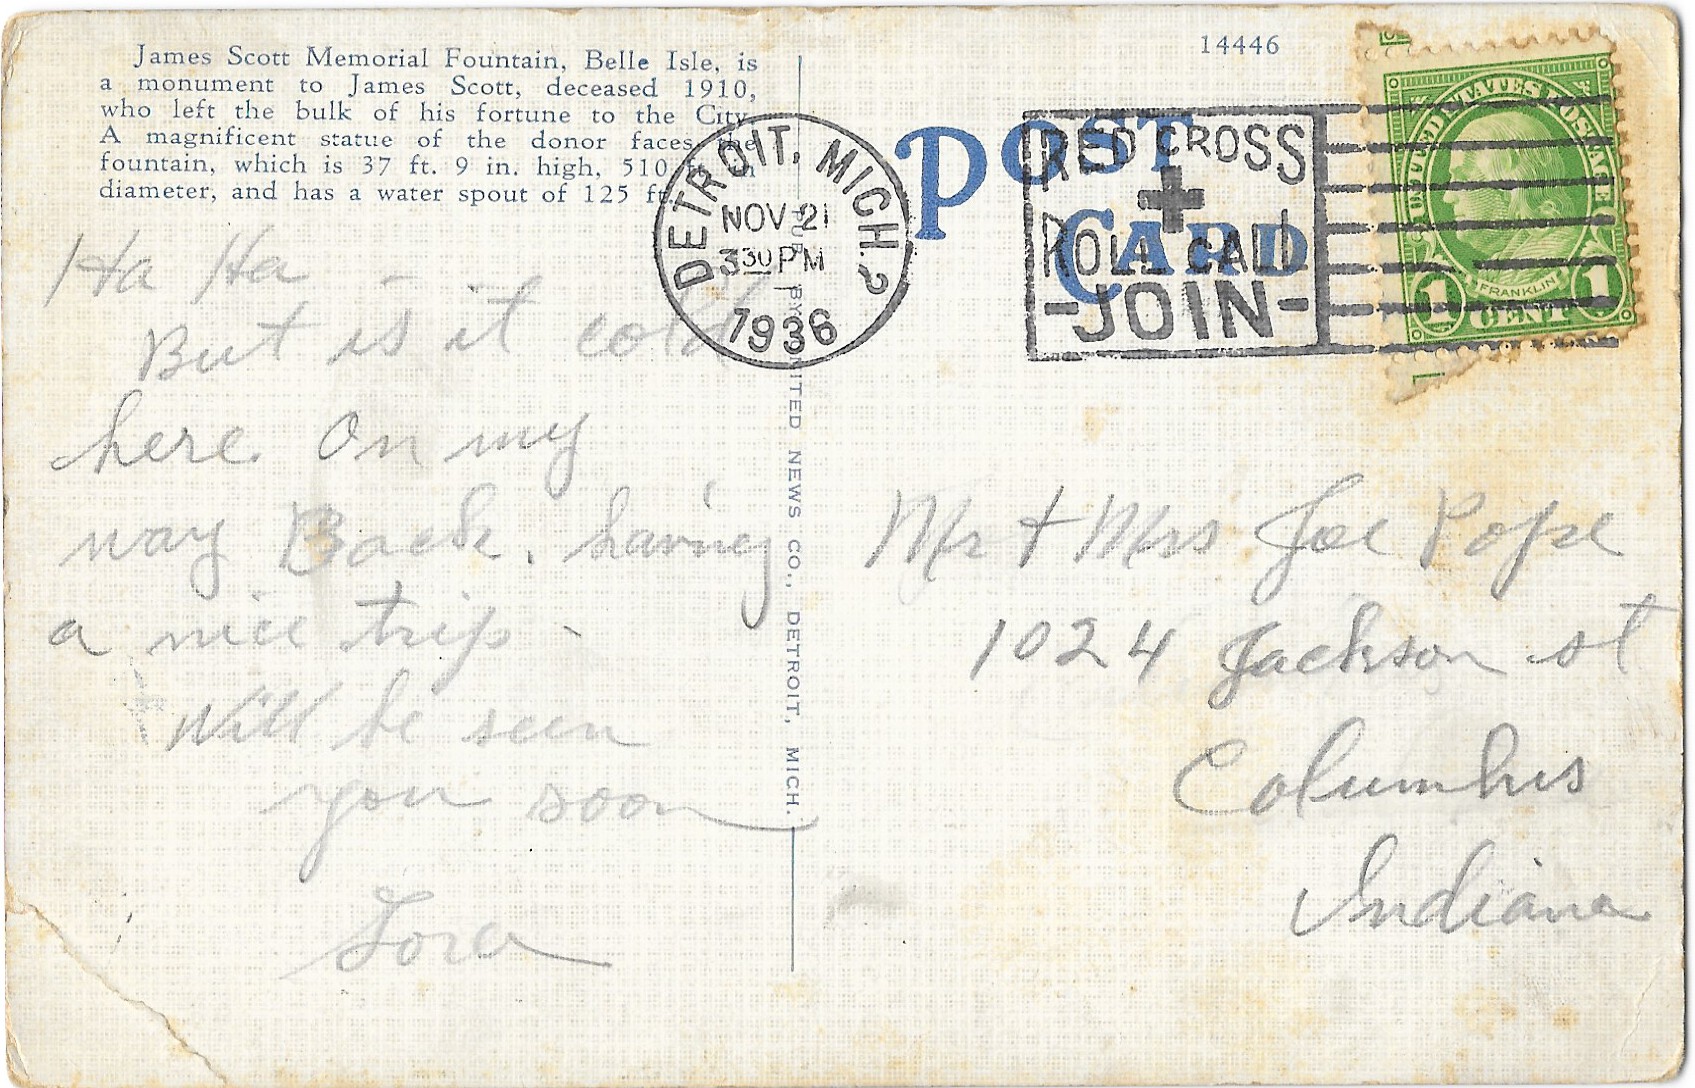 James Scott Memorial Fountain, Belle Isle, is
a monument to James Scott, deceased 1910,
who left the bulk of his fortune to the City.
A magnificent statue of the donor faces the
fountain, which is 37 ft. 9 in. high, 510 ft. in
diameter, and has a water spout of 125 ft.
14446
POST CARD
DETROIT, MICH. 2
NOV 21
3 30 PM
1936
RED CROSS
ROLL CALL
-JOIN-
UNITED STATES POSTAGE
FRANKLIN
1 CENT 1
PUB. BY UNITED NEWS CO., DETROIT, MICH.
Ha Ha -
But is it cold
here On my
way Back, having
a nice trip -
Will be seen
you soon
Mr + Mrs Joe Pope
1024 Jackson st
Columbus
Indiana